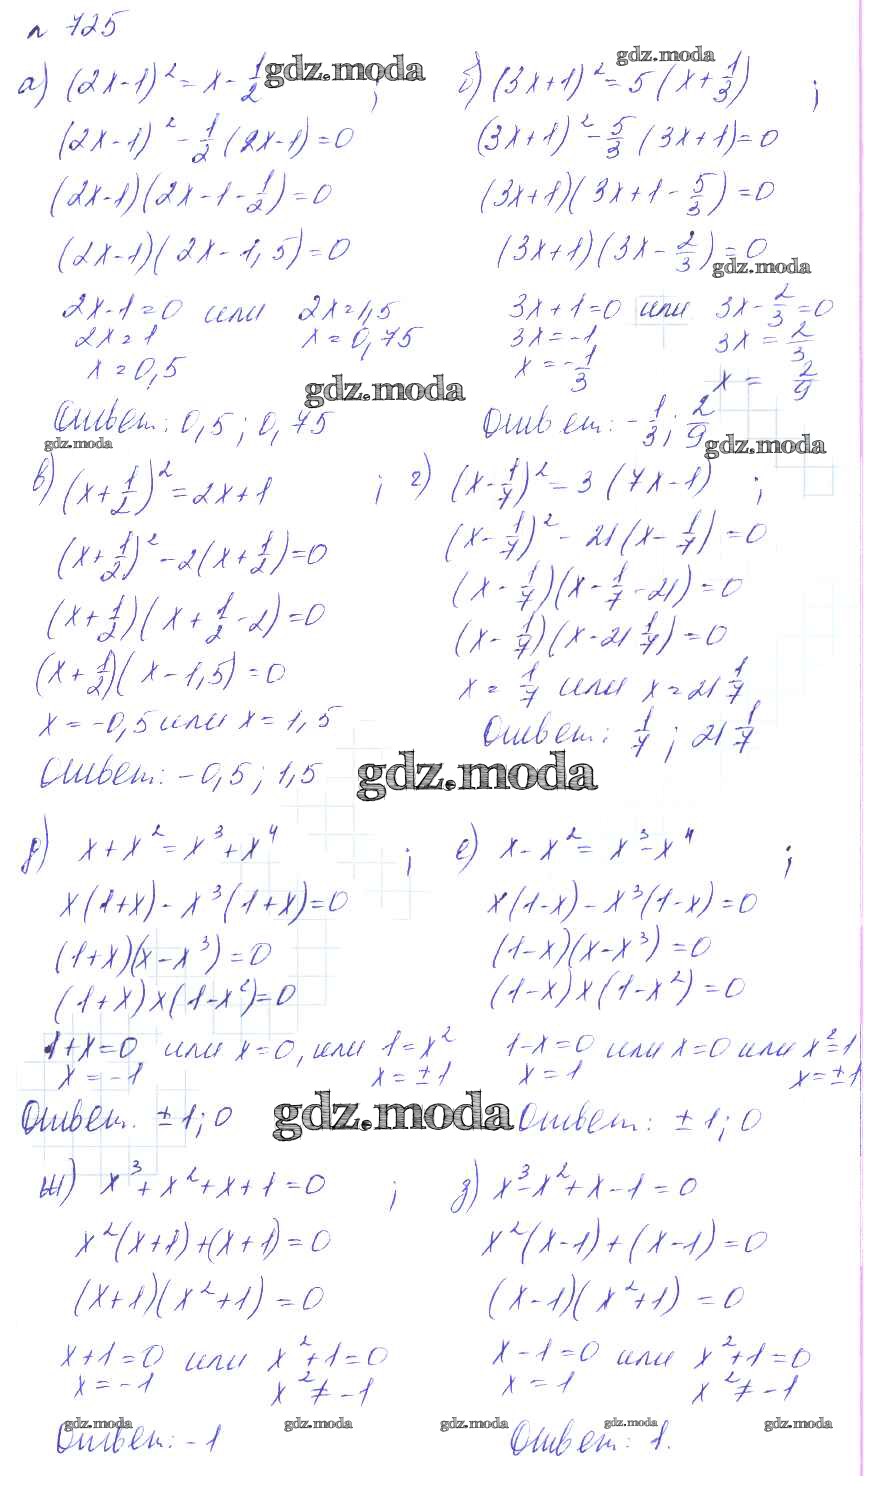 n 725
а) (2x-1)² = x - 1/2 ;
(2x-1)² - 1/2 (2x-1) = 0
(2x-1)(2x-1-1/2) = 0
(2x-1)(2x-1,5) = 0
2x-1=0 или 2x=1,5
2x=1 x=0,75
x=0,5
Ответ: 0,5; 0,75
б) (3x+1)² = 5(x+1/3) ;
(3x+1)² - 5/3 (3x+1) = 0
(3x+1)(3x+1-5/3) = 0
(3x+1)(3x-2/3) = 0
3x+1=0 или 3x-2/3=0
3x=-1 3x=2/3
x=-1/3 x=2/9
Ответ: -1/3; 2/9
в) (x+1/2)² = 2x+1 ;
(x+1/2)² - 2(x+1/2) = 0
(x+1/2)(x+1/2-2) = 0
(x+1/2)(x-1,5) = 0
x=-0,5 или x=1,5
Ответ: -0,5; 1,5
г) (x-1/7)² = 3(7x-1) ;
(x-1/7)² - 21(x-1/7) = 0
(x-1/7)(x-1/7-21) = 0
(x-1/7)(x-21 1/7) = 0
x=1/7 или x=21 1/7
Ответ: 1/7; 21 1/7
д) x+x² = x³+x⁴ ;
x(1+x) - x³(1+x) = 0
(1+x)(x-x³) = 0
(1+x)x(1-x²) = 0
1+x=0 или x=0, или 1=x²
x=-1 x=±1
Ответ. ±1; 0
е) x-x² = x³-x⁴ ;
x(1-x) - x³(1-x) = 0
(1-x)(x-x³) = 0
(1-x)x(1-x²) = 0
1-x=0 или x=0 или x²=1
x=1 x=±1
Ответ: ±1; 0
ж) x³+x²+x+1=0 ;
x²(x+1)+(x+1)=0
(x+1)(x²+1)=0
x+1=0 или x²+1=0
x=-1 x²≠-1
Ответ: -1
з) x³-x²+x-1=0
x²(x-1)+(x-1)=0
(x-1)(x²+1)=0
x-1=0 или x²+1=0
x=1 x²≠-1
Ответ: 1.
gdz.moda
gdz.moda
gdz.moda
gdz.moda
gdz.moda
gdz.moda
gdz.moda
gdz.moda
gdz.moda
gdz.moda
gdz.moda
gdz.moda
gdz.moda